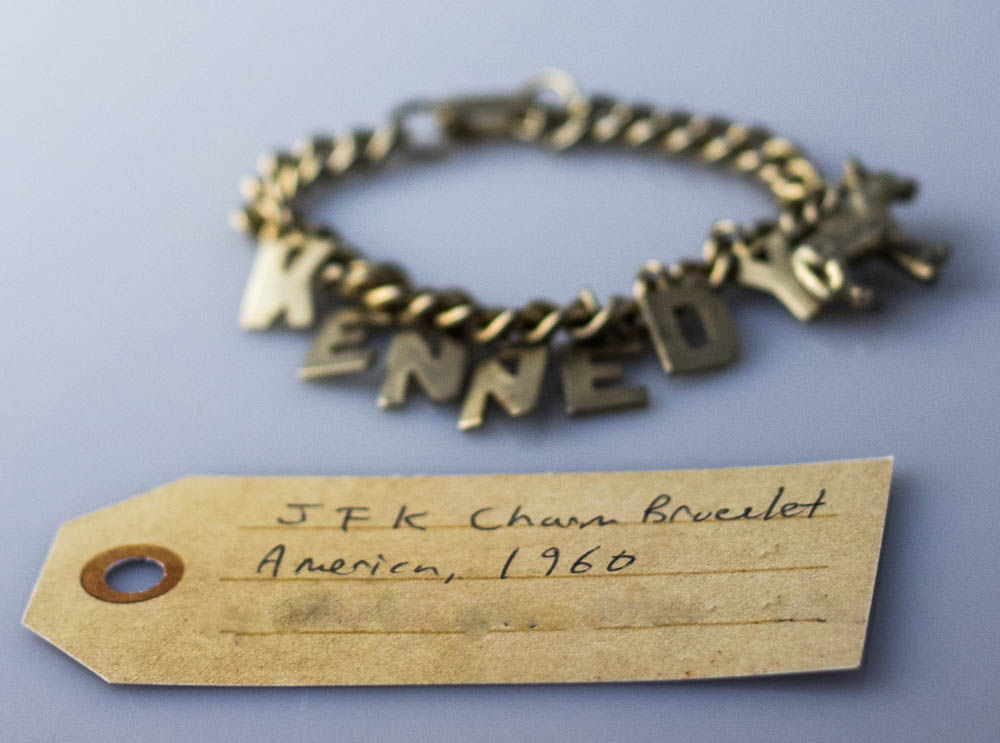 KENNEDY
JFK Charm Bracelet
America, 1960